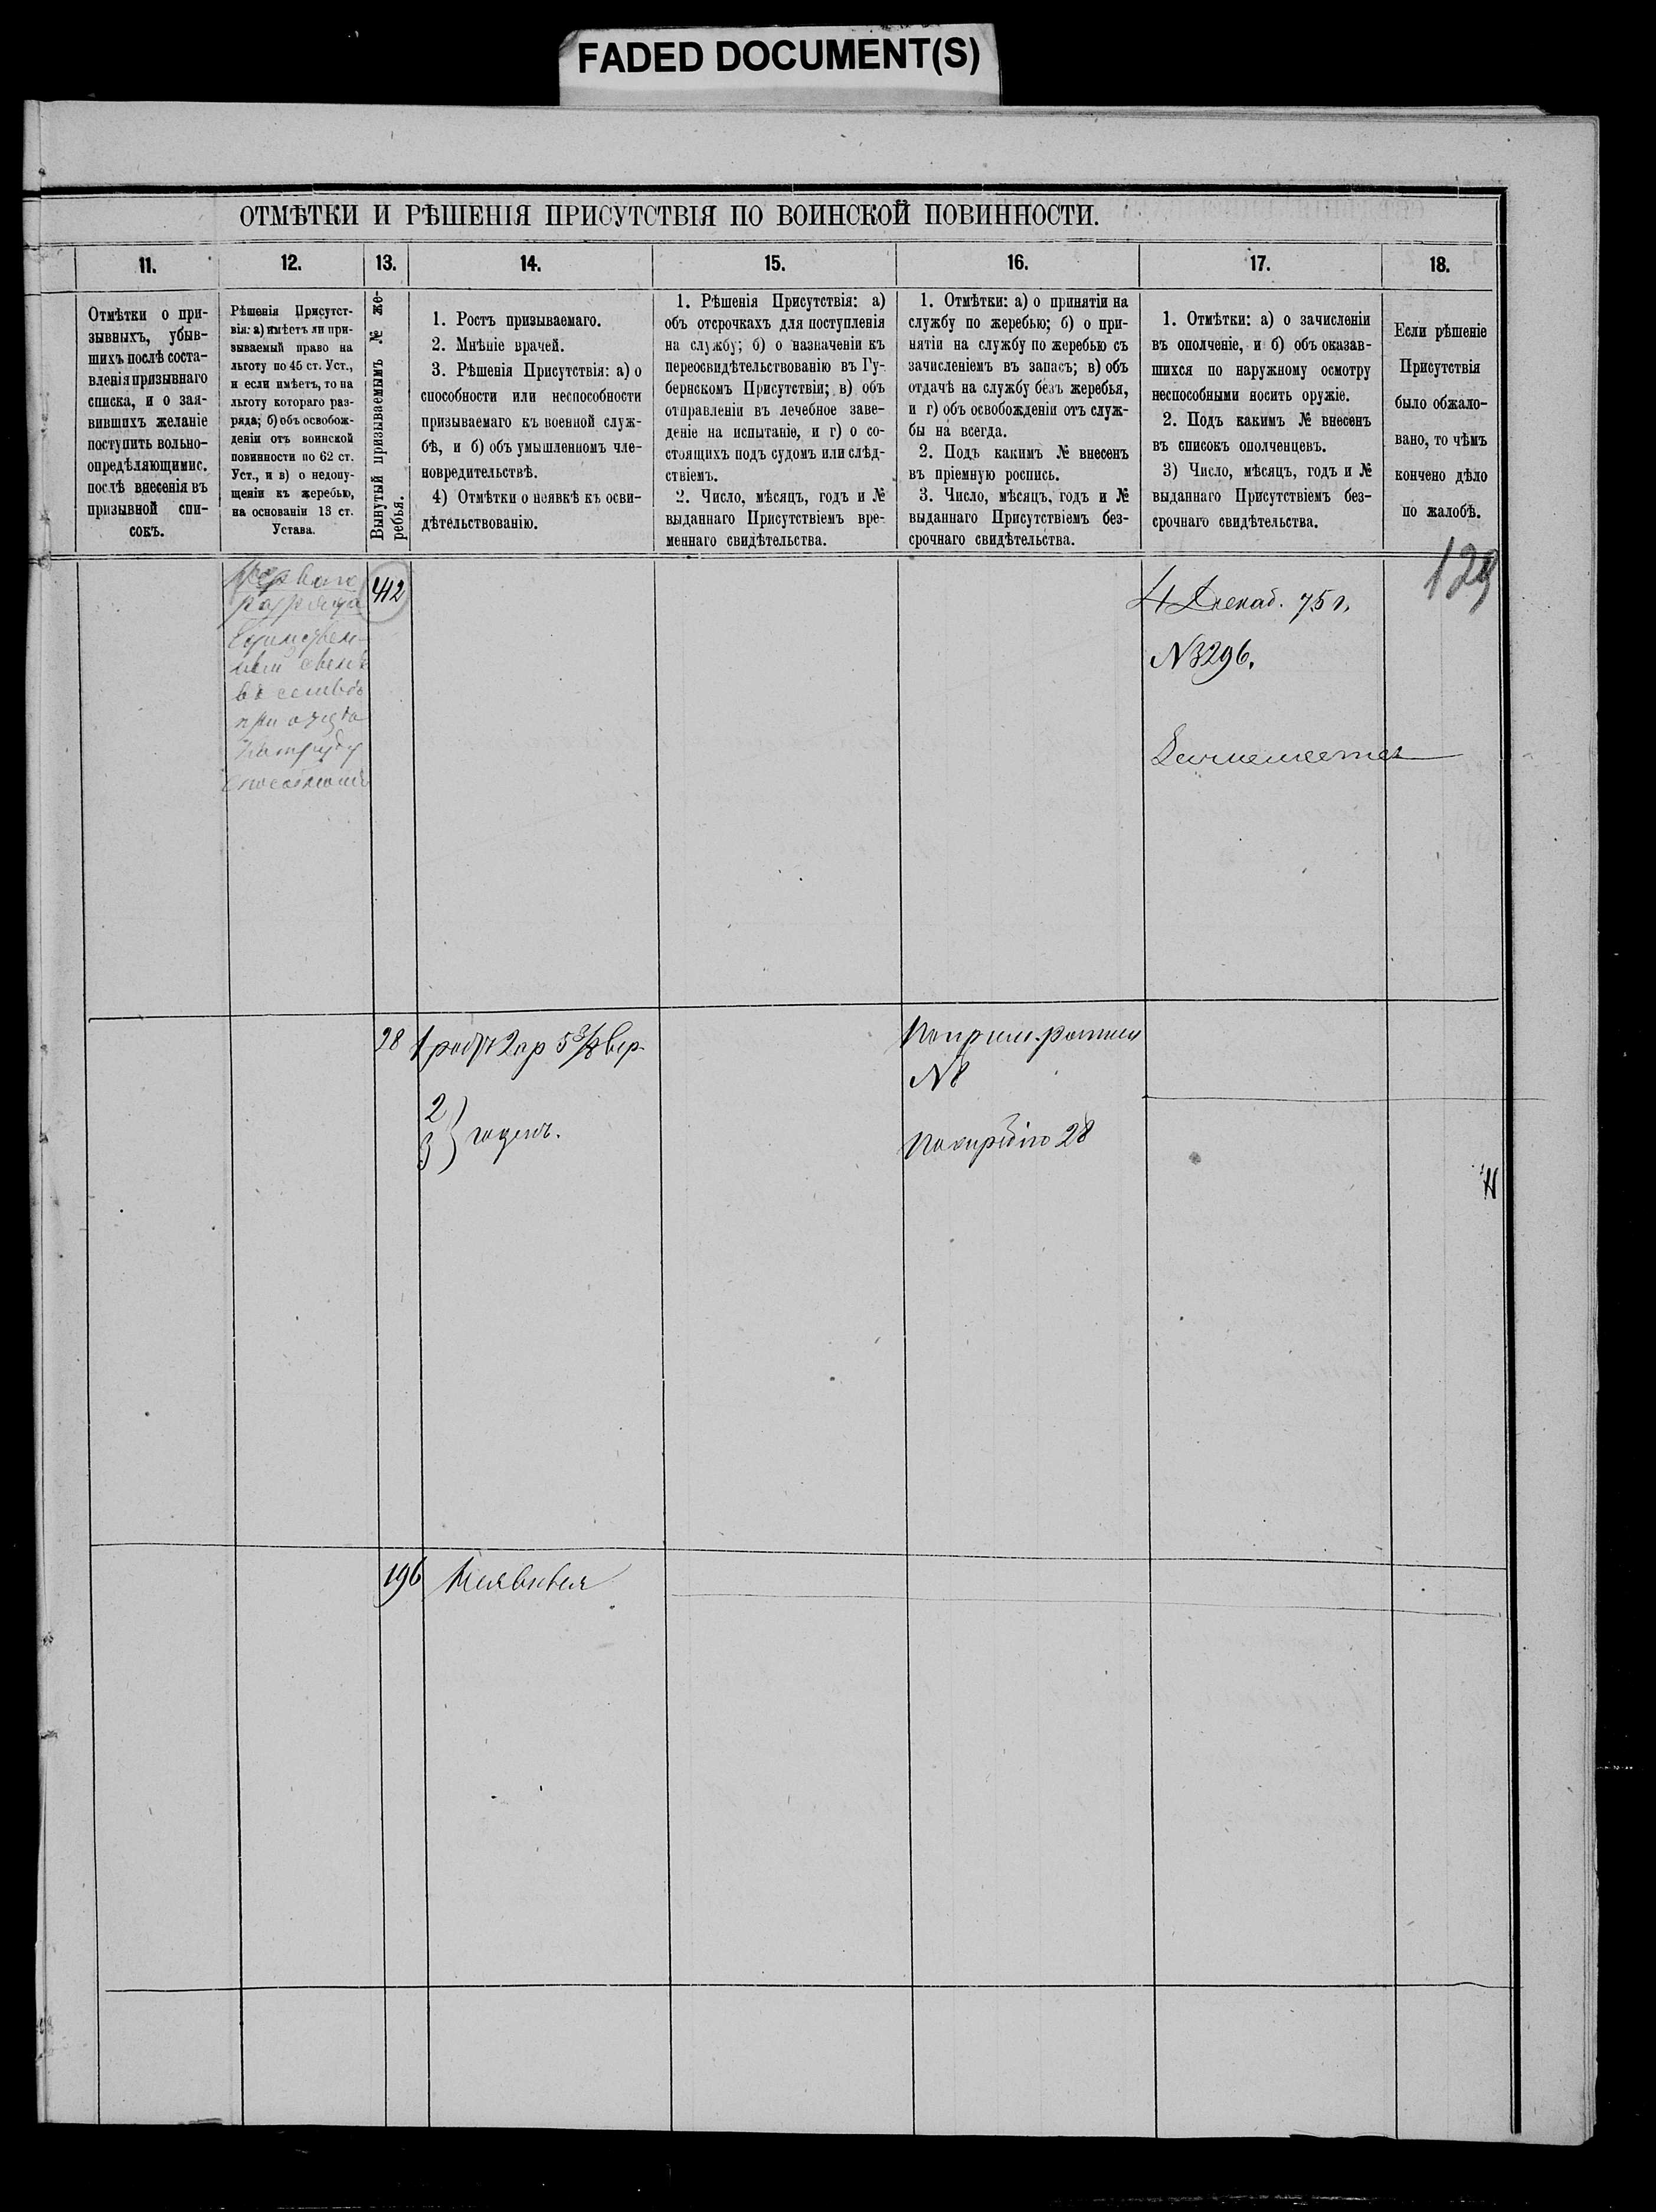 FADED DOCUMENT(S)
ОТМѢТКИ И РѢШЕНІЯ ПРИСУТСТВІЯ ПО ВОИНСКОЙ ПОВИННОСТИ.
11.
12.
13.
14.
15.
16.
17.
18.
Отмѣтки о при-
зывныхъ, убыв-
шихъ послѣ соста-
вленія призывнаго
списка, и о зая-
вившихъ желаніе
поступить вольно-
опредѣляющимис.
послѣ внесенія въ
призывной спи-
сокъ.
Рѣшенія Присутст-
вія: а) имѣетъ ли при-
зываемый право на
льготу по 45 ст. Уст.,
и если имѣетъ, то на
льготу котораго раз-
ряда; б) объ освобож-
деніи отъ воинской
повинности по 62 ст.
Уст., и в) о недопу-
щеніи къ жеребью,
на основаніи 13 ст.
Устава.
Вынутый призываемымъ № же-
ребья.
1. Ростъ призываемаго.
2. Мнѣніе врачей.
3. Рѣшенія Присутствія: а) о
способности или неспособности
призываемаго къ военной служ-
бѣ, и б) объ умышленномъ чле-
новредительствѣ.
4) Отмѣтки о неявкѣ къ осви-
дѣтельствованію.
1. Рѣшенія Присутствія: а)
объ отсрочкахъ для поступленія
на службу; б) о назначеніи къ
переосвидѣтельствованію въ Гу-
бернскомъ Присутствіи; в) объ
отправленіи въ лечебное заве-
деніе на испытаніе, и г) о со-
стоящихъ подъ судомъ или слѣд-
ствіемъ.
2. Число, мѣсяцъ, годъ и №
выданнаго Присутствіемъ вре-
меннаго свидѣтельства.
1. Отмѣтки: а) о принятіи на
службу по жеребью; б) о при-
нятіи на службу по жеребью съ
зачисленіемъ въ запасъ; в) объ
отдачѣ на службу безъ жеребья,
и г) объ освобожденіи отъ служ-
бы на всегда.
2. Подъ какимъ № внесенъ
въ пріемную роспись.
3. Число, мѣсяцъ, годъ и №
выданнаго Присутствіемъ без-
срочнаго свидѣтельства.
1. Отмѣтки: а) о зачисленіи
въ ополченіе, и б) объ оказав-
шихся по наружному осмотру
неспособными носить оружіе.
2. Подъ какимъ № внесенъ
въ списокъ ополченцевъ.
3) Число, мѣсяцъ, годъ и №
выданнаго Присутствіемъ без-
срочнаго свидѣтельства.
Если рѣшеніе
Присутствія
было обжало-
вано, то чѣмъ
кончено дѣло
по жалобѣ.
129
Перваго
разряда
Единствен-
ный сынъ
въ семьѣ
при отцѣ
412
4 Декаб. 75 г.
№ 3296.
28
1 ростъ 2 ар 5 3/8 вер.
2
3 } годенъ.
По прием. росписи
№ 8
по жребію 28
196
Неявился